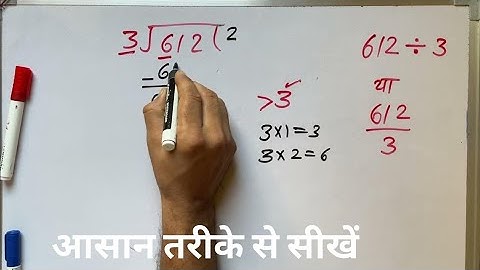 3√612(2
-6
>3✓
3×1=3
3×2=6
612÷3
या
612
3
आसान तरीके से सीखें